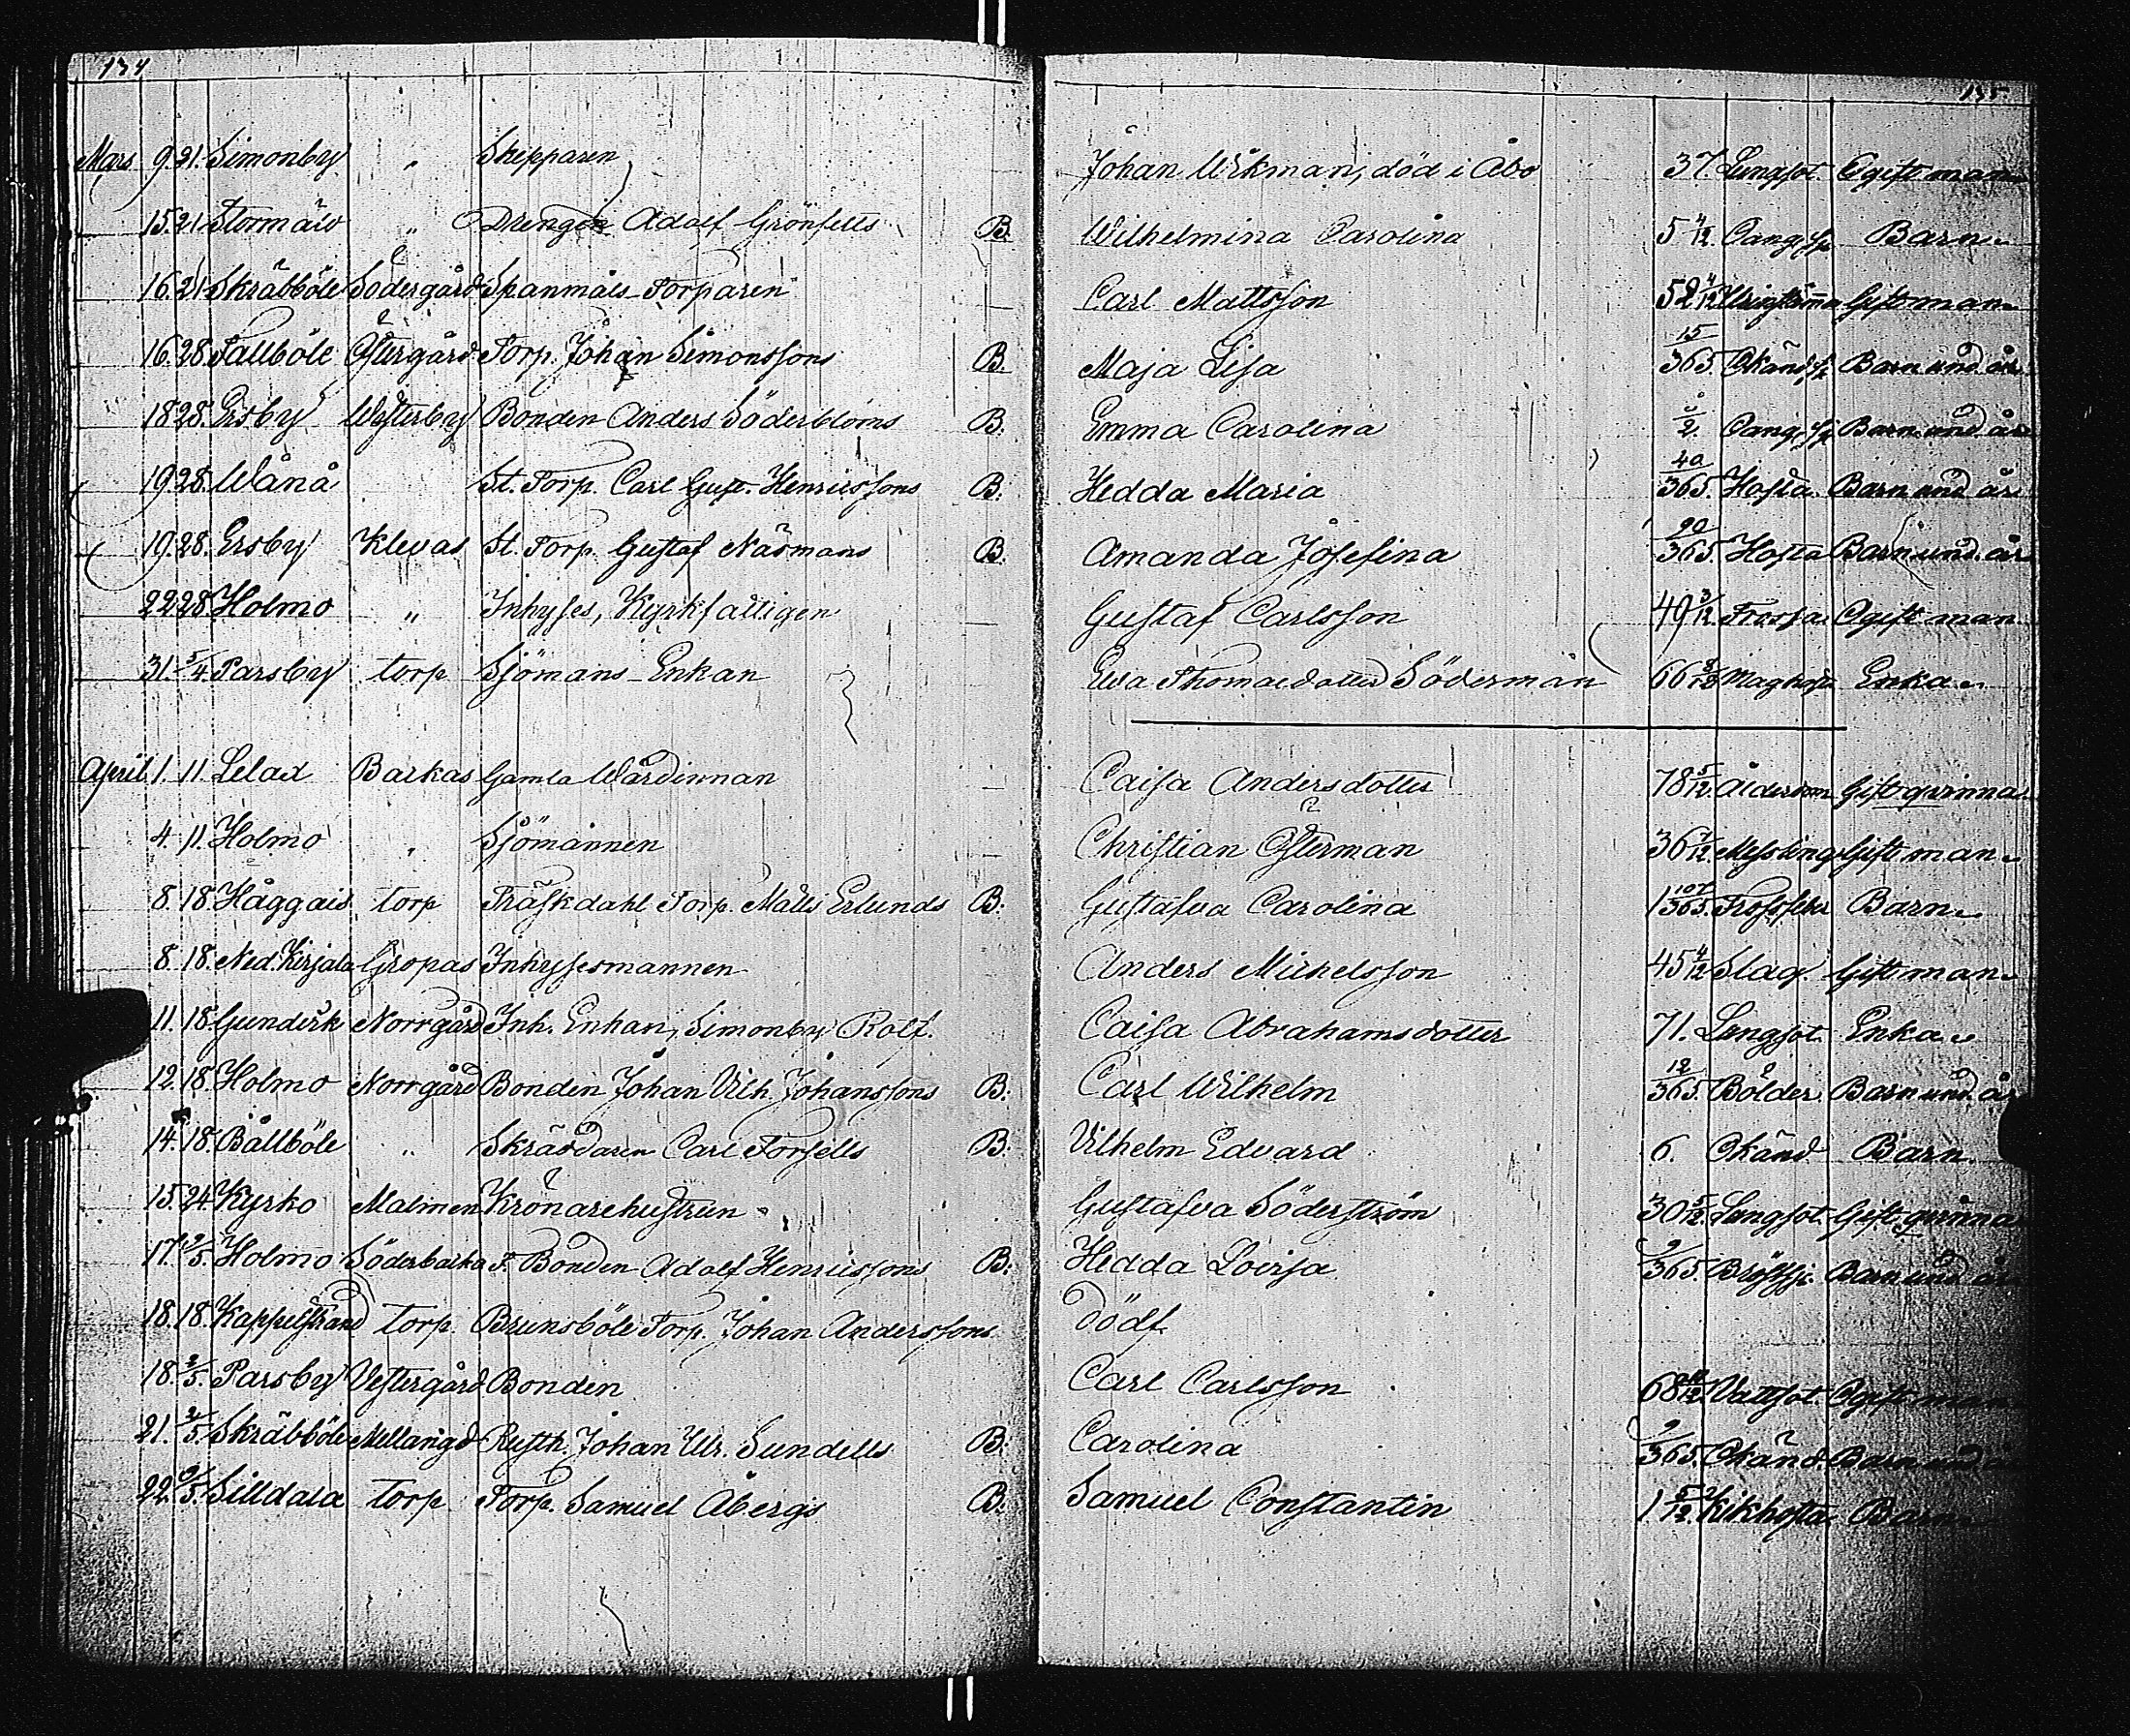 134
135
Mars 9. 21. Simonby " Skepparen Johan Wikman, död i Åbo 37. Lungsot. Ogift man
15. 21. Stormälö " Drengen Adolf Grönfelts B. Wilhelmina Carolina 5 4/12. Barn
16. 21. Skräbböle Södergård Spanmåls-Torparen Carl Mattsson 52 4/12. Gift man
16. 28. Tallböle Östergård Torp. Johan Simonssons B. Maja Lisa 15/365. Okänd sj. Barn und. år
18. 28. Ersby Westerby Bonden Anders Söderbloms B. Emma Carolina Barn und. år
19. 28. Wånå St. Torp. Carl Gust. Henricssons B. Hedda Maria 40/365. Hosta Barn und. år
19. 28. Ersby Klevas St. Torp. Gustaf Näsmans B. Amanda Josefina 20/365. Hosta Barn und. år
22. 28. Holmo " Inhyses, Kyrkfattigen Gustaf Carlsson 49 3/12. Frossa Ogift man
31. 5/4. Parsby torp Sjömans-Enkan Ewa Thomasdotter Söderman 66 Enka
April 1. 11. Lelax Backas Gamla Wärdinnan Caisa Andersdotter 78 5/12. Ålderdom Gift qvinna
4. 11. Holmo " Sjömannen Christian Österman 36 7/12. Messling Gift man
8. 18. Häggais torp Träskdahl Torp. Matts Erlunds B. Gustafva Carolina 1 107/365. Barn
8. 18. Ned. Kirjala Gropas Inhysesmannen Anders Michelsson 45 4/12 Slag Gift man
11. 18. Norrgård Inh. Enkan, Simonby Rolf. Caisa Abrahamsdotter 71. Lungsot. Enka
12. 18. Holmo Norrgård Bonden Johan Vilh. Johanssons B. Carl Wilhelm 12/365. Bölder Barn und. år
14. 18. Bällböle " Skräddaren Carl Forsells B. Vilhelm Edvard 6. Okänd Barn
15. 24. Kyrko Malmen Krönarehustrun Gustafva Söderström 30 5/12. Lungsot. Gift qvinna
17. 2/5. Holmo Söderbacka F. Bonden Adolf Henricssons B. Hedda Lovisa 9/365. Bröstsj. Barn und. år
18. 18. Kappelstrand torp. Brunsböle Torp. Johan Anderssons dödf.
18. 2/5. Parsby Vestergård Bonden Carl Carlsson 68 Vattsot. Ogift man
21. 2/5. Skräbböle Mellangd Rusth. Johan Ulr. Sundells B. Carolina 9/365. Okänd. Barn und. år
22. Silldala torp Torp. Samuel Åbergs B. Samuel Constantin 1 5/12. Kikhosta Barn